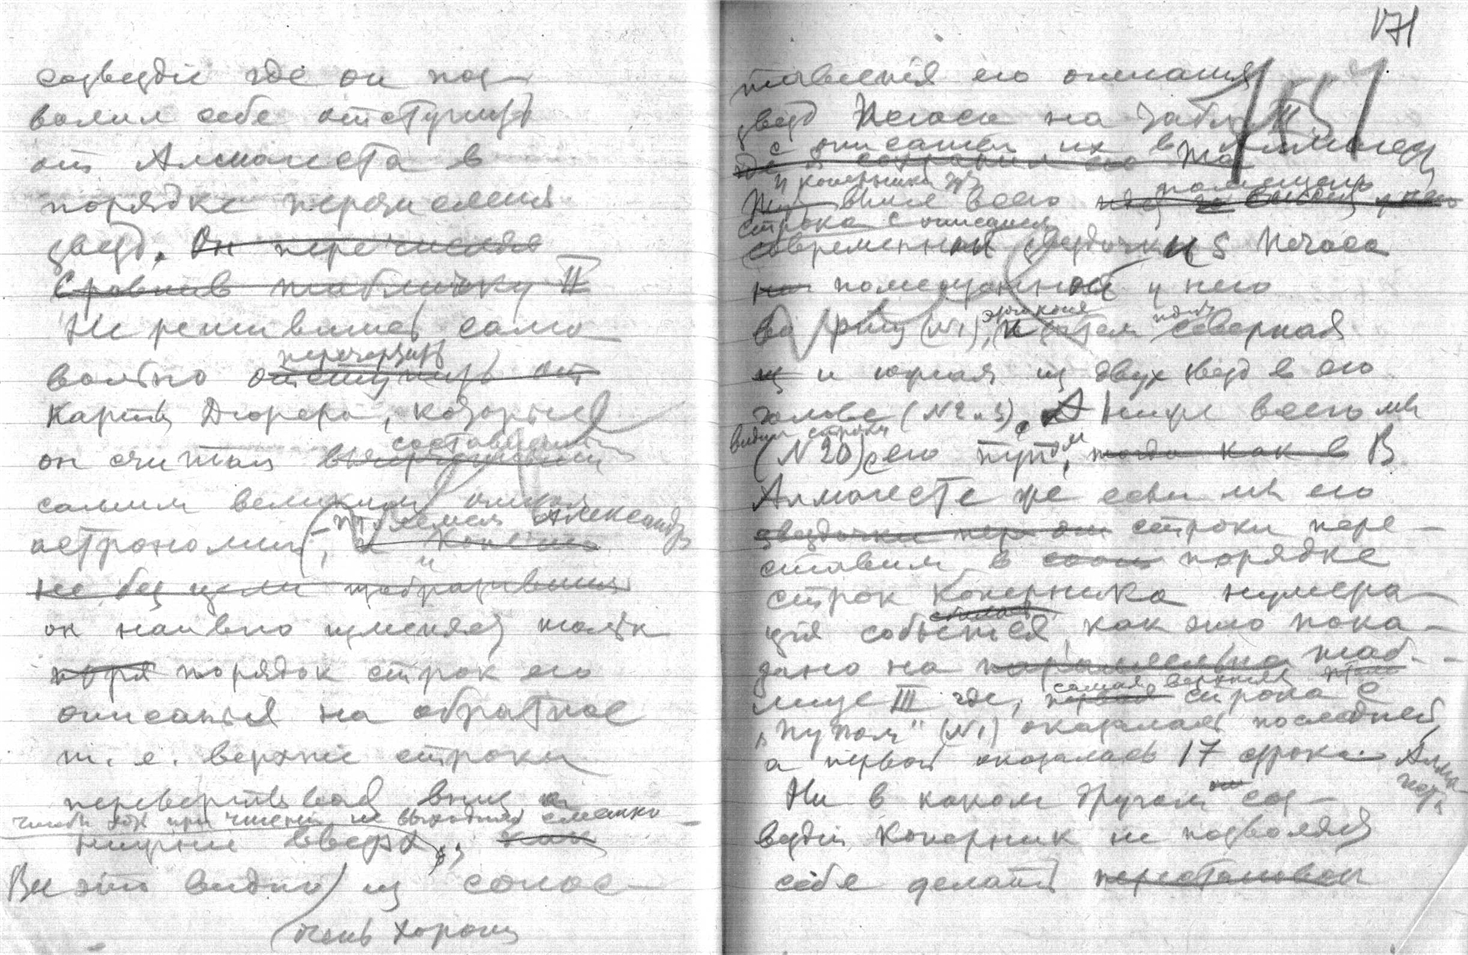 созвездіе где он поз-
волил себе отступить
от Алмагеста в
порядке перечисления
звезд. Он перечислял
Сравнив табличку II
Не решившись само-
вольно перечертить
отступить от
карты Дюрера, которые
он считал составленными
самим великим отцом
астрономии, Птолемеем Александр
не без цели изобразившим
он наивно изменяет только
порядок строк его
описанья на обратное
т. е. верхніе строки
перевертывая вниз а
чтобы при чтении не выходило
нижние вверх, как
Вы это видите из сопос-
очень хорошо
171
1551
тавления его описания
звезд Пегаса на табл II
с описанием их в Алмагест
У Коперника
выше всего помещена
строка с описанием
современной звездочки Пегаса
помещенной у него
во рту (№1), затем северная
и южная из двух звезд в его
голове (№ 2 и 3). А ниже всего мы
видим строку
(№20) с его пупом, тогда как в В
Алмагесте же если мы его
звездочки строки пере-
ставим в порядке
строк Коперника нумера-
ція собьется, как это пока-
зано на таб-
лице III где, самая верхняя строка с
„Пупом" (№1) оказалась последней,
а первой оказалась 17 строка Алма-
геста
Ни в каком другом соз-
вездіи Коперник не позволяет
себе делать перестановки